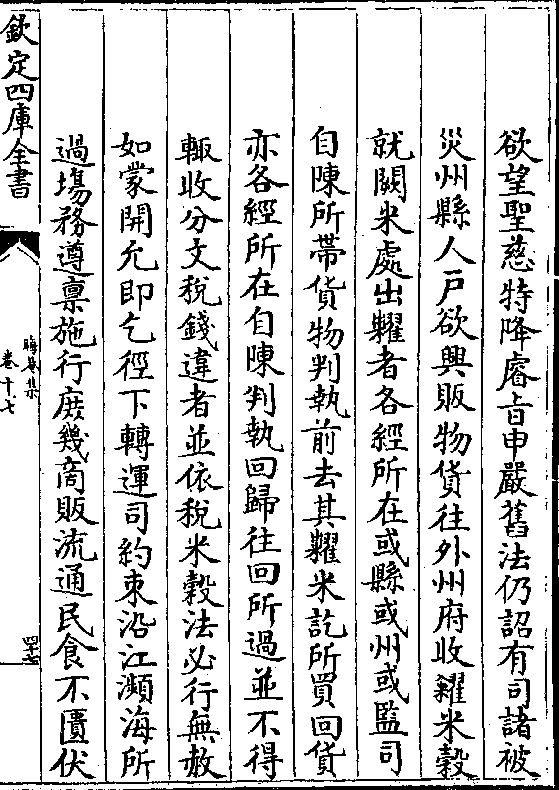 欲望聖慈特降睿旨申嚴舊法仍詔有司諸被
災州縣人戸欲興販物貨往外州府收糴米穀
就闕米處出糶者各經所在或縣或州或監司
自陳所帶貨物判執前去其糶米訖所買回貨
亦各經所在自陳判執回歸往回所過並不得
輒收分文稅錢違者並依稅米穀法必行無赦
如蒙開允即乞徑下轉運司約束沿江瀕海所
過場務遵禀施行庶幾商販流通民食不匱伏
欽定四庫全書
晦菴集
卷十七